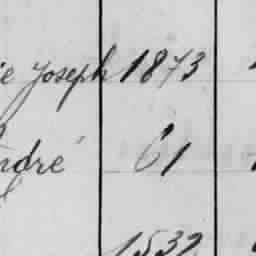 ie Joseph 1873
ndré 61
1532